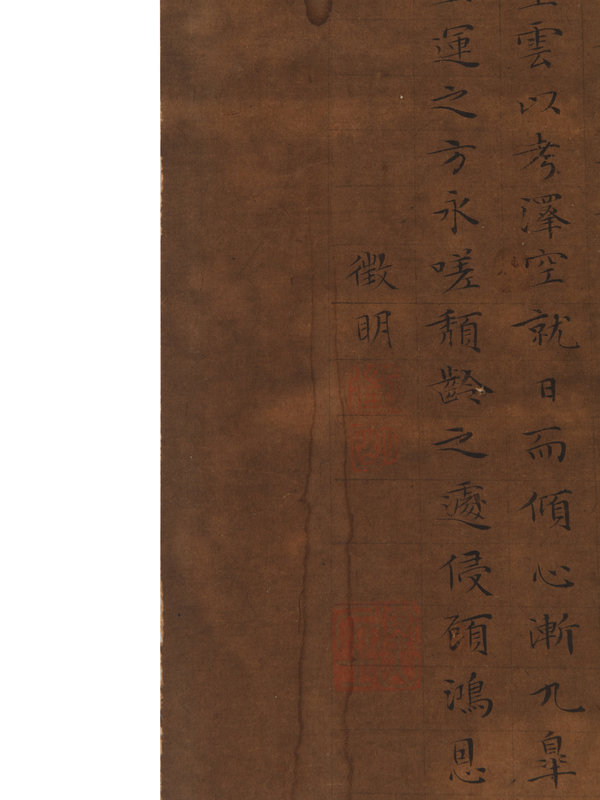 雲以考澤空就日而傾心漸九皐
運之方永嗟頽齡之遽侵頋鴻恩
徵明